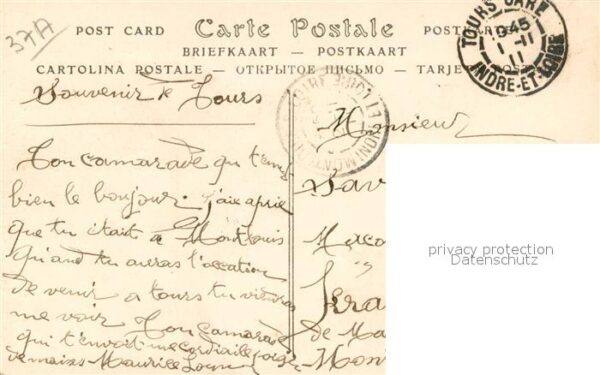 37A
POST CARD Carte Postale POSTCA
BRIEFKAART — POSTKAART
CARTOLINA POSTALE — ОТКРЫТОЕ ПИСЬМО — TARJE
TOURS GARE
1945
1-11
11
INDRE-ET-LOIRE
Souvenir de Tours
Monsieur
Ton camarade qui t'env
bien le bonjour. j'aie apris
que tu était à Montlouis
Quand tu auras l'occation
de venir a tours tu viendras
me voir Ton Camarade
qui t'envoit me cordiaile
de mains Maurice
Sav
de Ma
Mon
privacy protection
Datenschutz